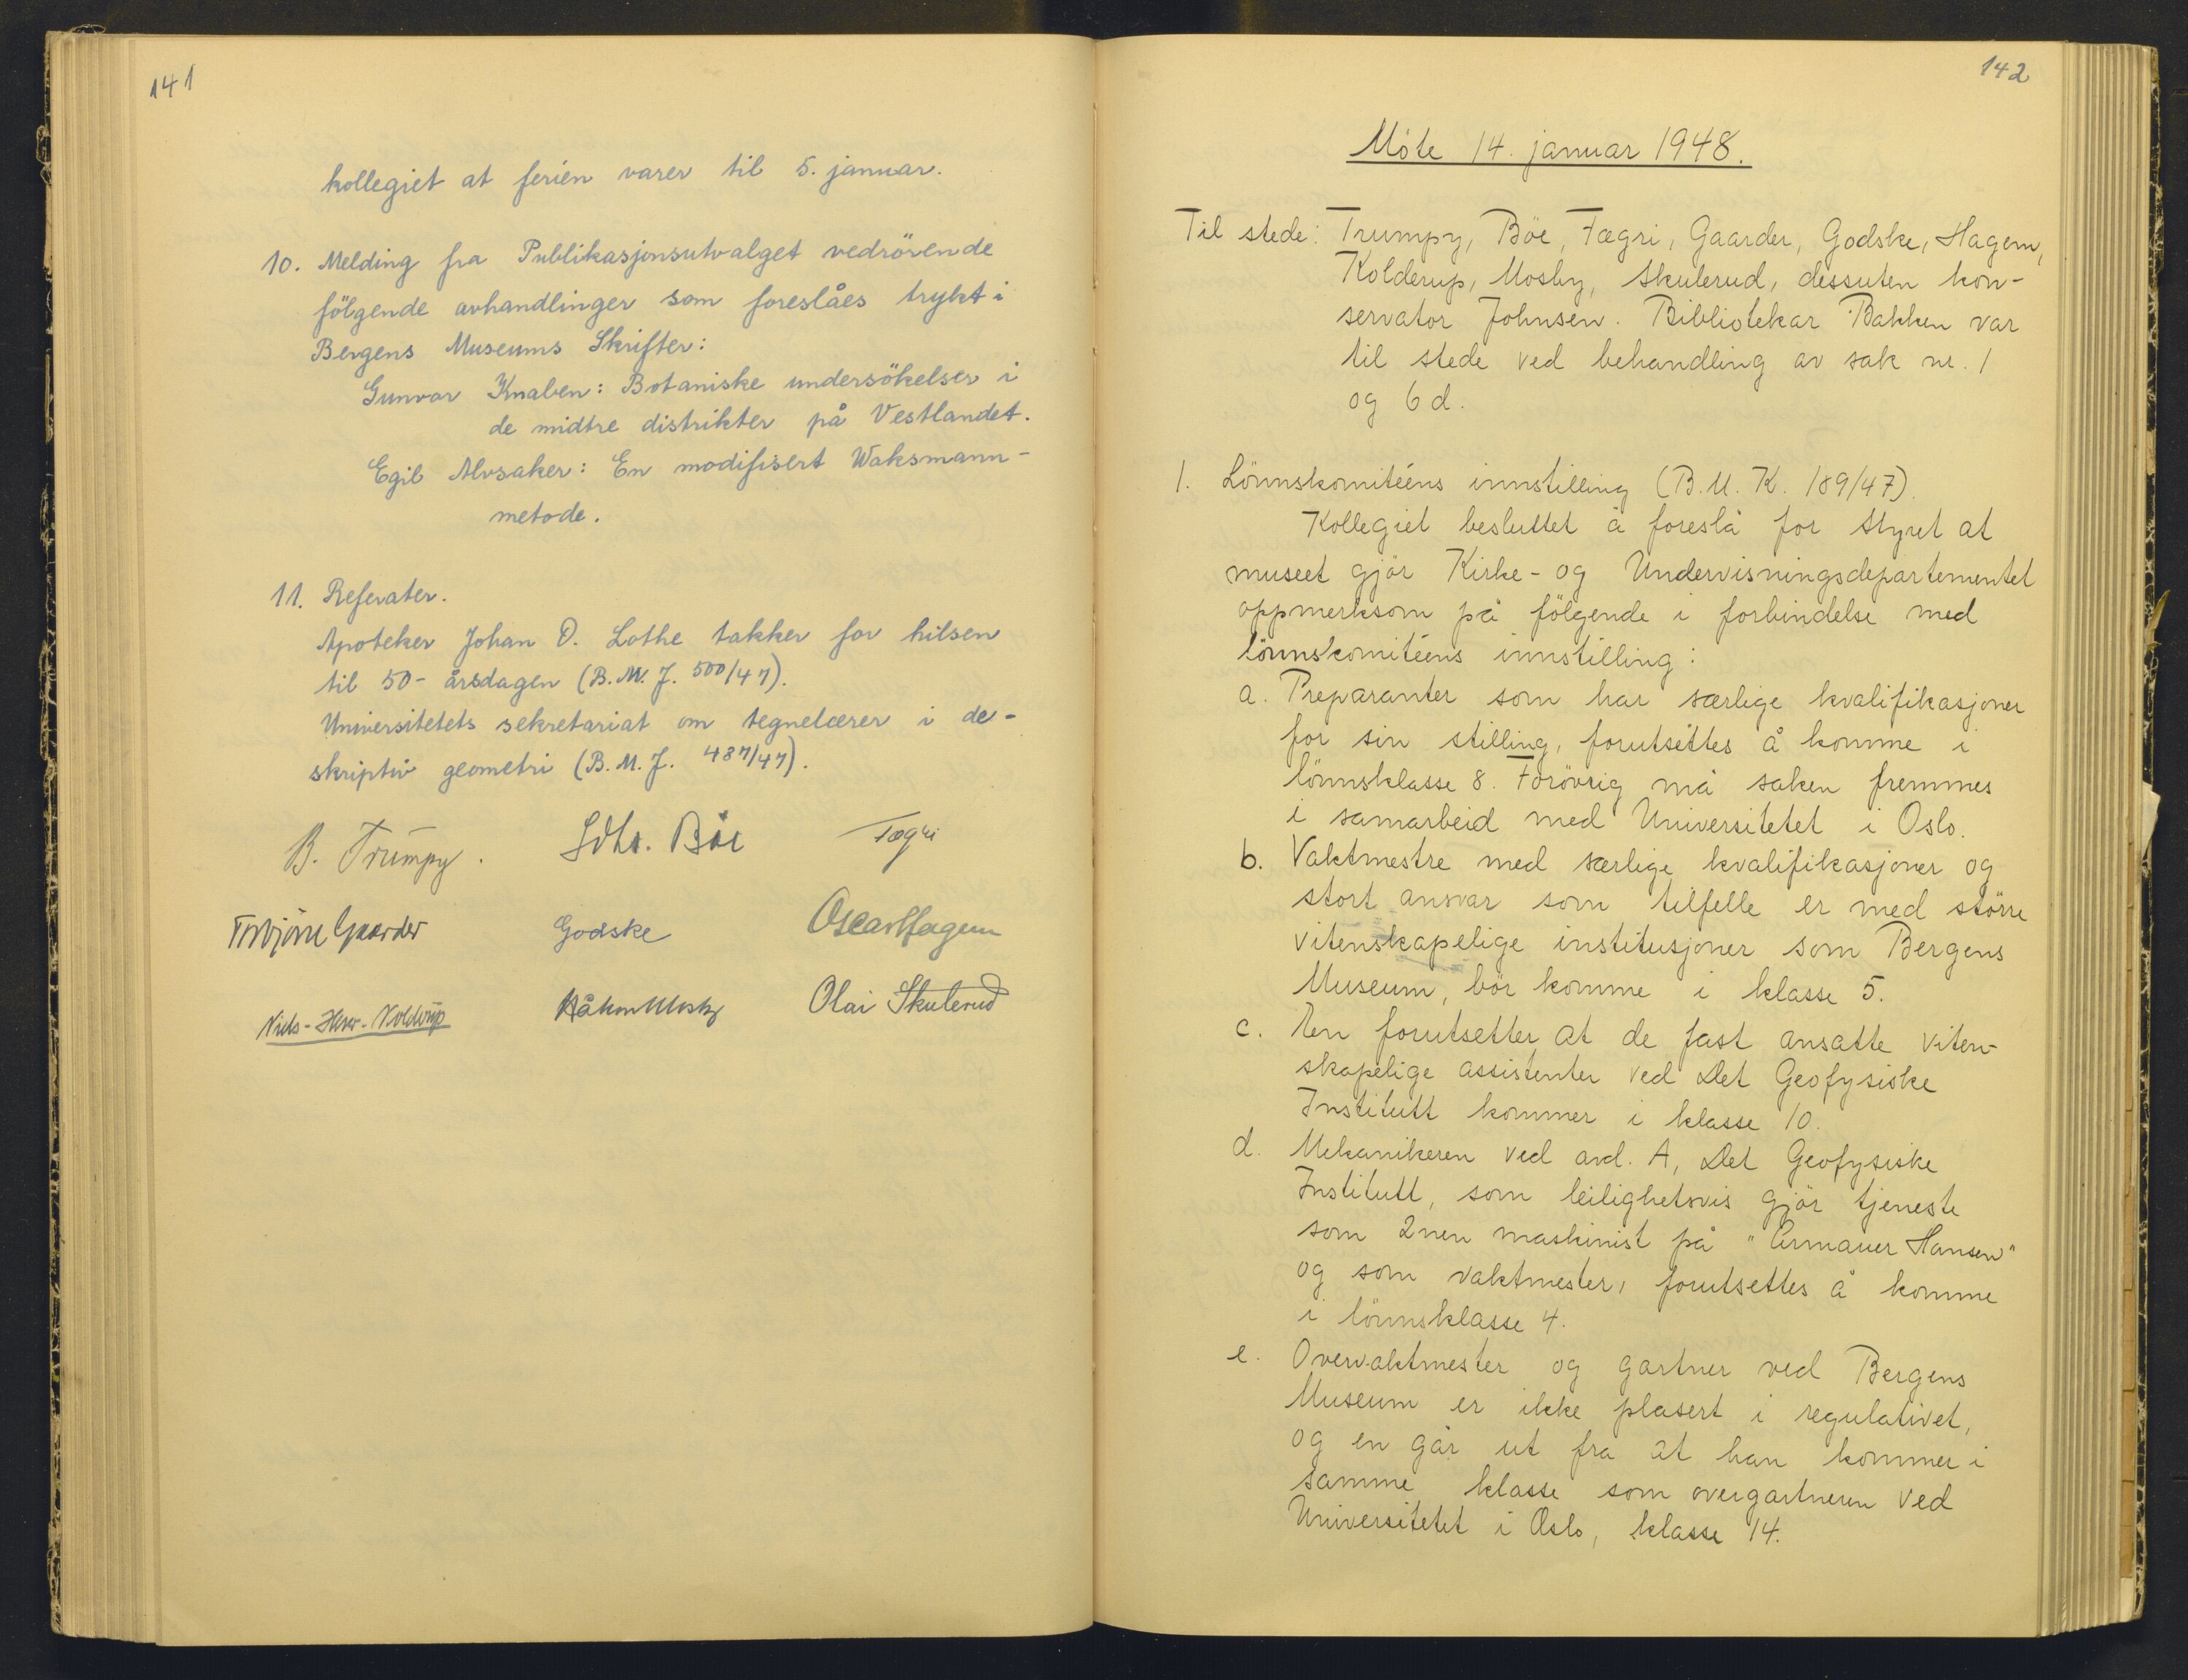 141
kollegiet at ferien varer til 5. januar.
10. Melding fra Publikasjonsutvalget vedrörende
fölgende avhandlinger som foreslåes trykt i
Bergens Museums Skrifter:
Gunvor Knaben: Botaniske undersökelser i
de midtre distrikter på Vestlandet.
Egil Alvsaker: En modifisert Waksmann-
metode.
11. Referater.
Apoteker Johan O. Lothe takker for hilsen
til 50-årsdagen (B.M.J. 500/47).
Universitetets sekretariat om tegnelærer i de-
skriptiv geometri (B.M.J. 487/47).
B. Trumpy. Johs. Böe Fægri
Torbjörn Gaarder Godske Oscar Hagem
Niels-Henr. Kolderup Håkon Mosby Olai Skulerud
142
Möte 14. januar 1948.
Til stede: Trumpy, Böe, Fægri, Gaarder, Godske, Hagem,
Kolderup, Mosby, Skulerud, dessuten kon-
servator Johnsen. Bibliotekar Bakken var
til stede ved behandling av sak nr. 1
og 6 d.
1. Lönnskomitéens innstilling (B.M.K. 189/47).
Kollegiet besluttet å foreslå for Styret at
museet gjör Kirke- og Undervisningsdepartementet
oppmerksom på fölgende i forbindelse med
lönnskomitéens innstilling:
a. Preparanter som har særlige kvalifikasjoner
for sin stilling, forutsettes å komme i
lönnsklasse 8. Forövrig må saken fremmes
i samarbeid med Universitetet i Oslo.
b. Vaktmestre med særlige kvalifikasjoner og
stort ansvar som tilfelle er med större
vitenskapelige institusjoner som Bergens
Museum, bör komme i klasse 5.
c. En forutsetter at de fast ansatte viten-
skapelige assistenter ved Det Geofysiske
Institutt kommer i klasse 10.
d. Mekanikeren ved avd. A, Det Geofysiske
Institutt, som leilighetsvis gjör tjeneste
som 2nen maskinist på "Armauer Hansen"
og som vaktmester, forutsettes å komme
i lönnsklasse 4.
e. Overvaktmester og gartner ved Bergens
Museum er ikke plasert i regulativet,
og en går ut fra at han kommer i
samme klasse som overgartneren ved
Universitetet i Oslo, klasse 14.